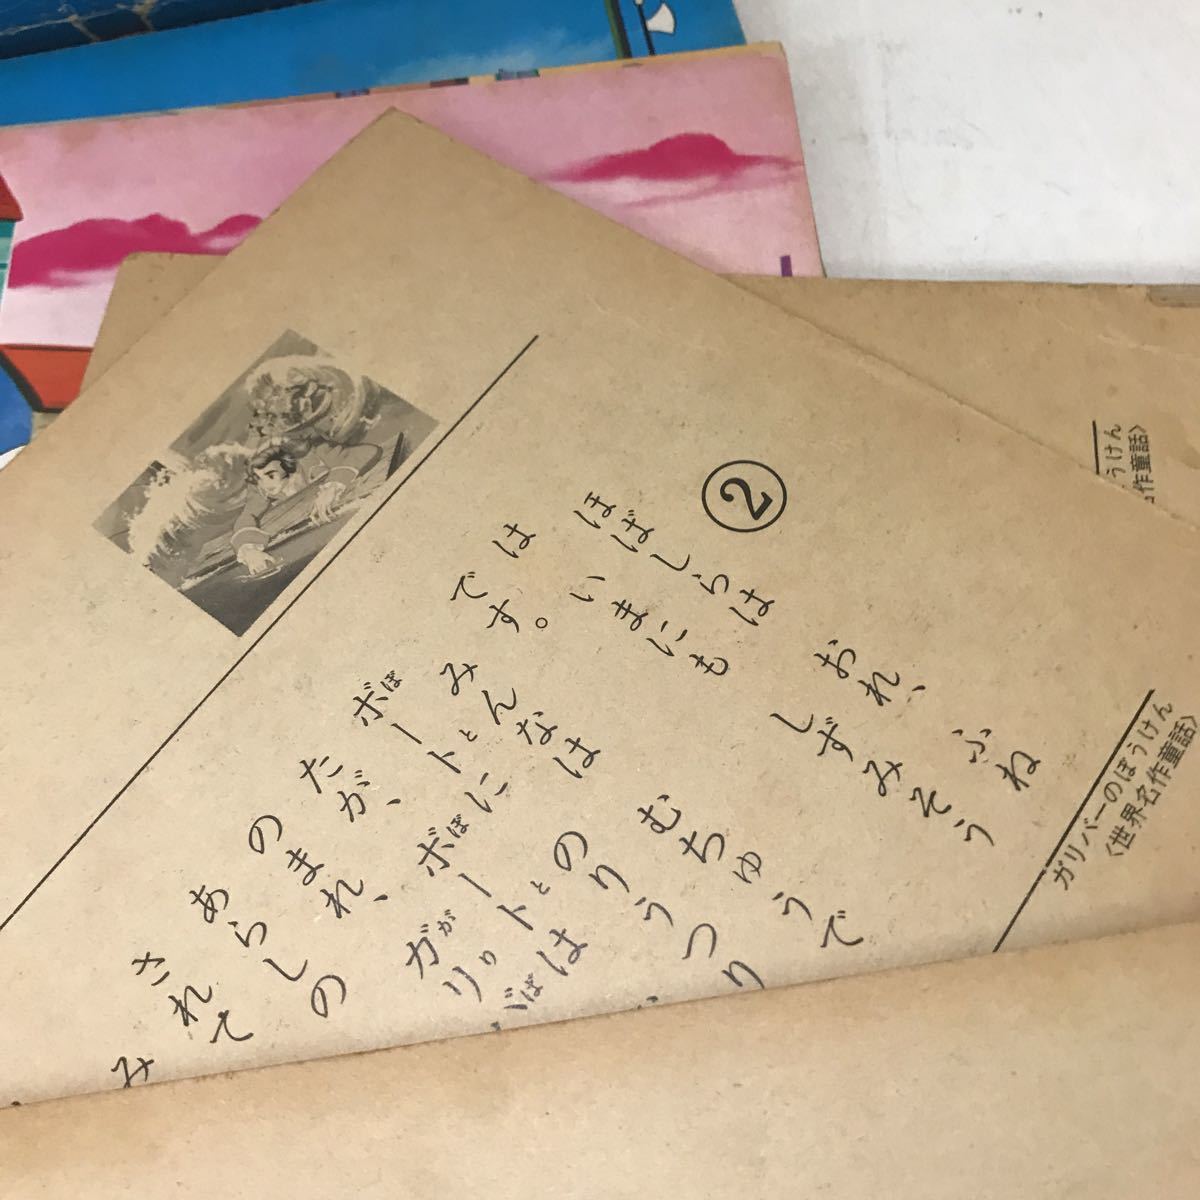 ガリバーのぼうけん
〈世界名作童話〉
②
ほばしらは おれ、ふね
は いまにも しずみそう
です。
みんなは むちゅうで
ボートに のりうつり
たが、ボートは
のまれ、ガリバ
あらしの
されて
み
うけん
作童話〉